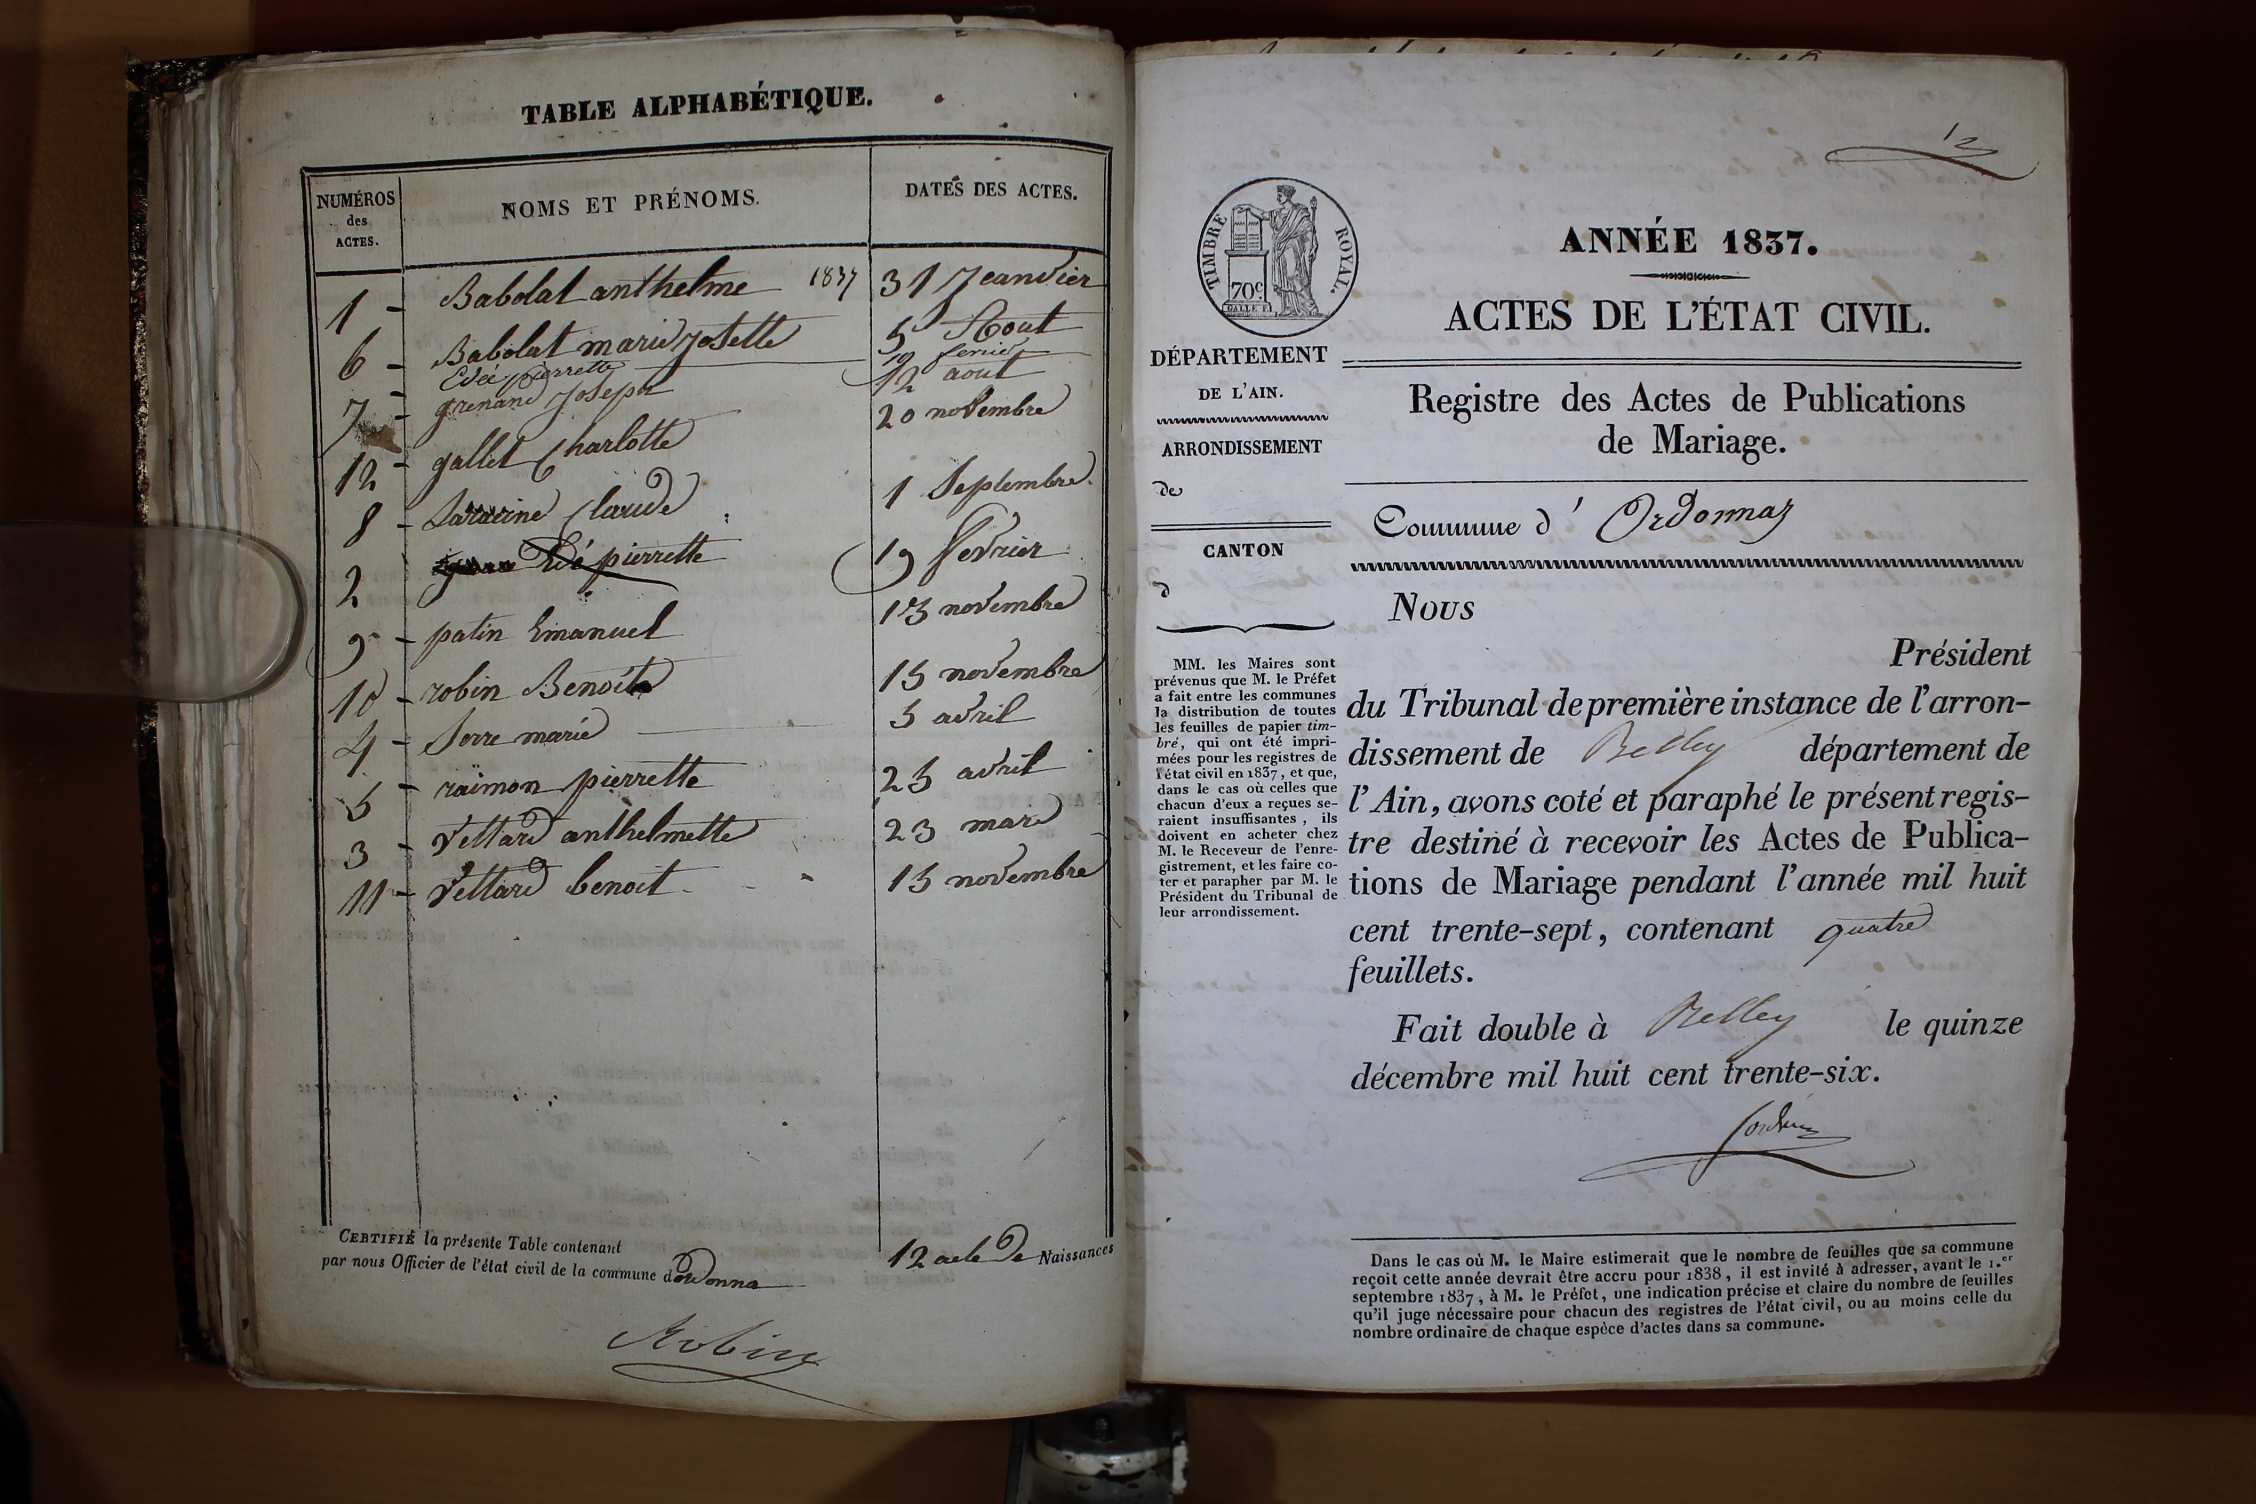 TABLE ALPHABÉTIQUE.
NUMÉROS des ACTES.
NOMS ET PRÉNOMS.
DATES DES ACTES.
1 - Babolat anthelme 1837 31 Jeanvier
6 - Babolat marie Josette 5 Aout
- Cdée pierrette 19 fevrier
7 - grenand Joseph 12 aout
12 - gallet Charlotte 20 novembre
8 - Saracine Claude 1 Septembre
2 pierrette 19 Fevrier
9 - patin Emanuel 13 novembre
10 - robin Benoit 15 novembre
4 - Serre marie 5 avril
5 - raimon pierrette 25 avril
3 - Vettard anthelmette 23 mars
11 - Vettard benoit 15 novembre
CERTIFIÉ la présente Table contenant 12 acte de Naissances
par nous Officier de l'état civil de la commune dordonna
Robin
12
TIMBRE ROYAL.
70c
DALLE
ANNÉE 1837.
ACTES DE L'ÉTAT CIVIL.
DÉPARTEMENT
DE L'AIN.
ARRONDISSEMENT
de
CANTON
d
MM. les Maires sont
prévenus que M. le Préfet
a fait entre les communes
la distribution de toutes
les feuilles de papier tim-
bré, qui ont été impri-
mées pour les registres de
l'état civil en 1837, et que,
dans le cas où celles que
chacun d'eux a reçues se-
raient insuffisantes, ils
doivent en acheter chez
M. le Receveur de l'enre-
gistrement, et les faire co-
ter et parapher par M. le
Président du Tribunal de
leur arrondissement.
Registre des Actes de Publications
de Mariage.
Commune d' Ordonnaz
Nous
Président
du Tribunal de première instance de l'arron-
dissement de Belley département de
l'Ain, avons coté et paraphé le présent regis-
tre destiné à recevoir les Actes de Publica-
tions de Mariage pendant l'année mil huit
cent trente-sept, contenant quatre
feuillets.
Fait double à Belley le quinze
décembre mil huit cent trente-six.
Dans le cas où M. le Maire estimerait que le nombre de feuilles que sa commune
reçoit cette année devrait être accru pour 1838, il est invité à adresser, avant le 1.er
septembre 1837, à M. le Préfet, une indication précise et claire du nombre de feuilles
qu'il juge nécessaire pour chacun des registres de l'état civil, ou au moins celle du
nombre ordinaire de chaque espèce d'actes dans sa commune.